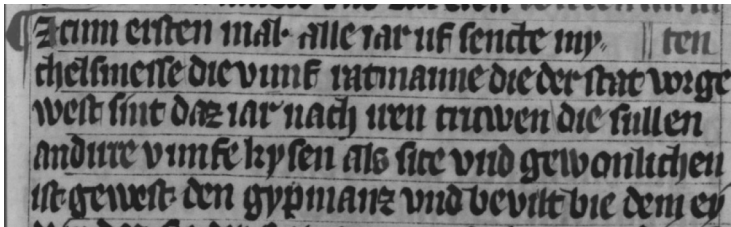 Zcum ersten mal· alle iar uf sencte my- ten
chelsmesse die vumf ratmanne die der stat vorge
west sint daz iar nach iren truwen die sullen
andire vumfe kysen als site vnd gewonlichen
ist gewest· den gyp manz vnd bevilt bie dem ey